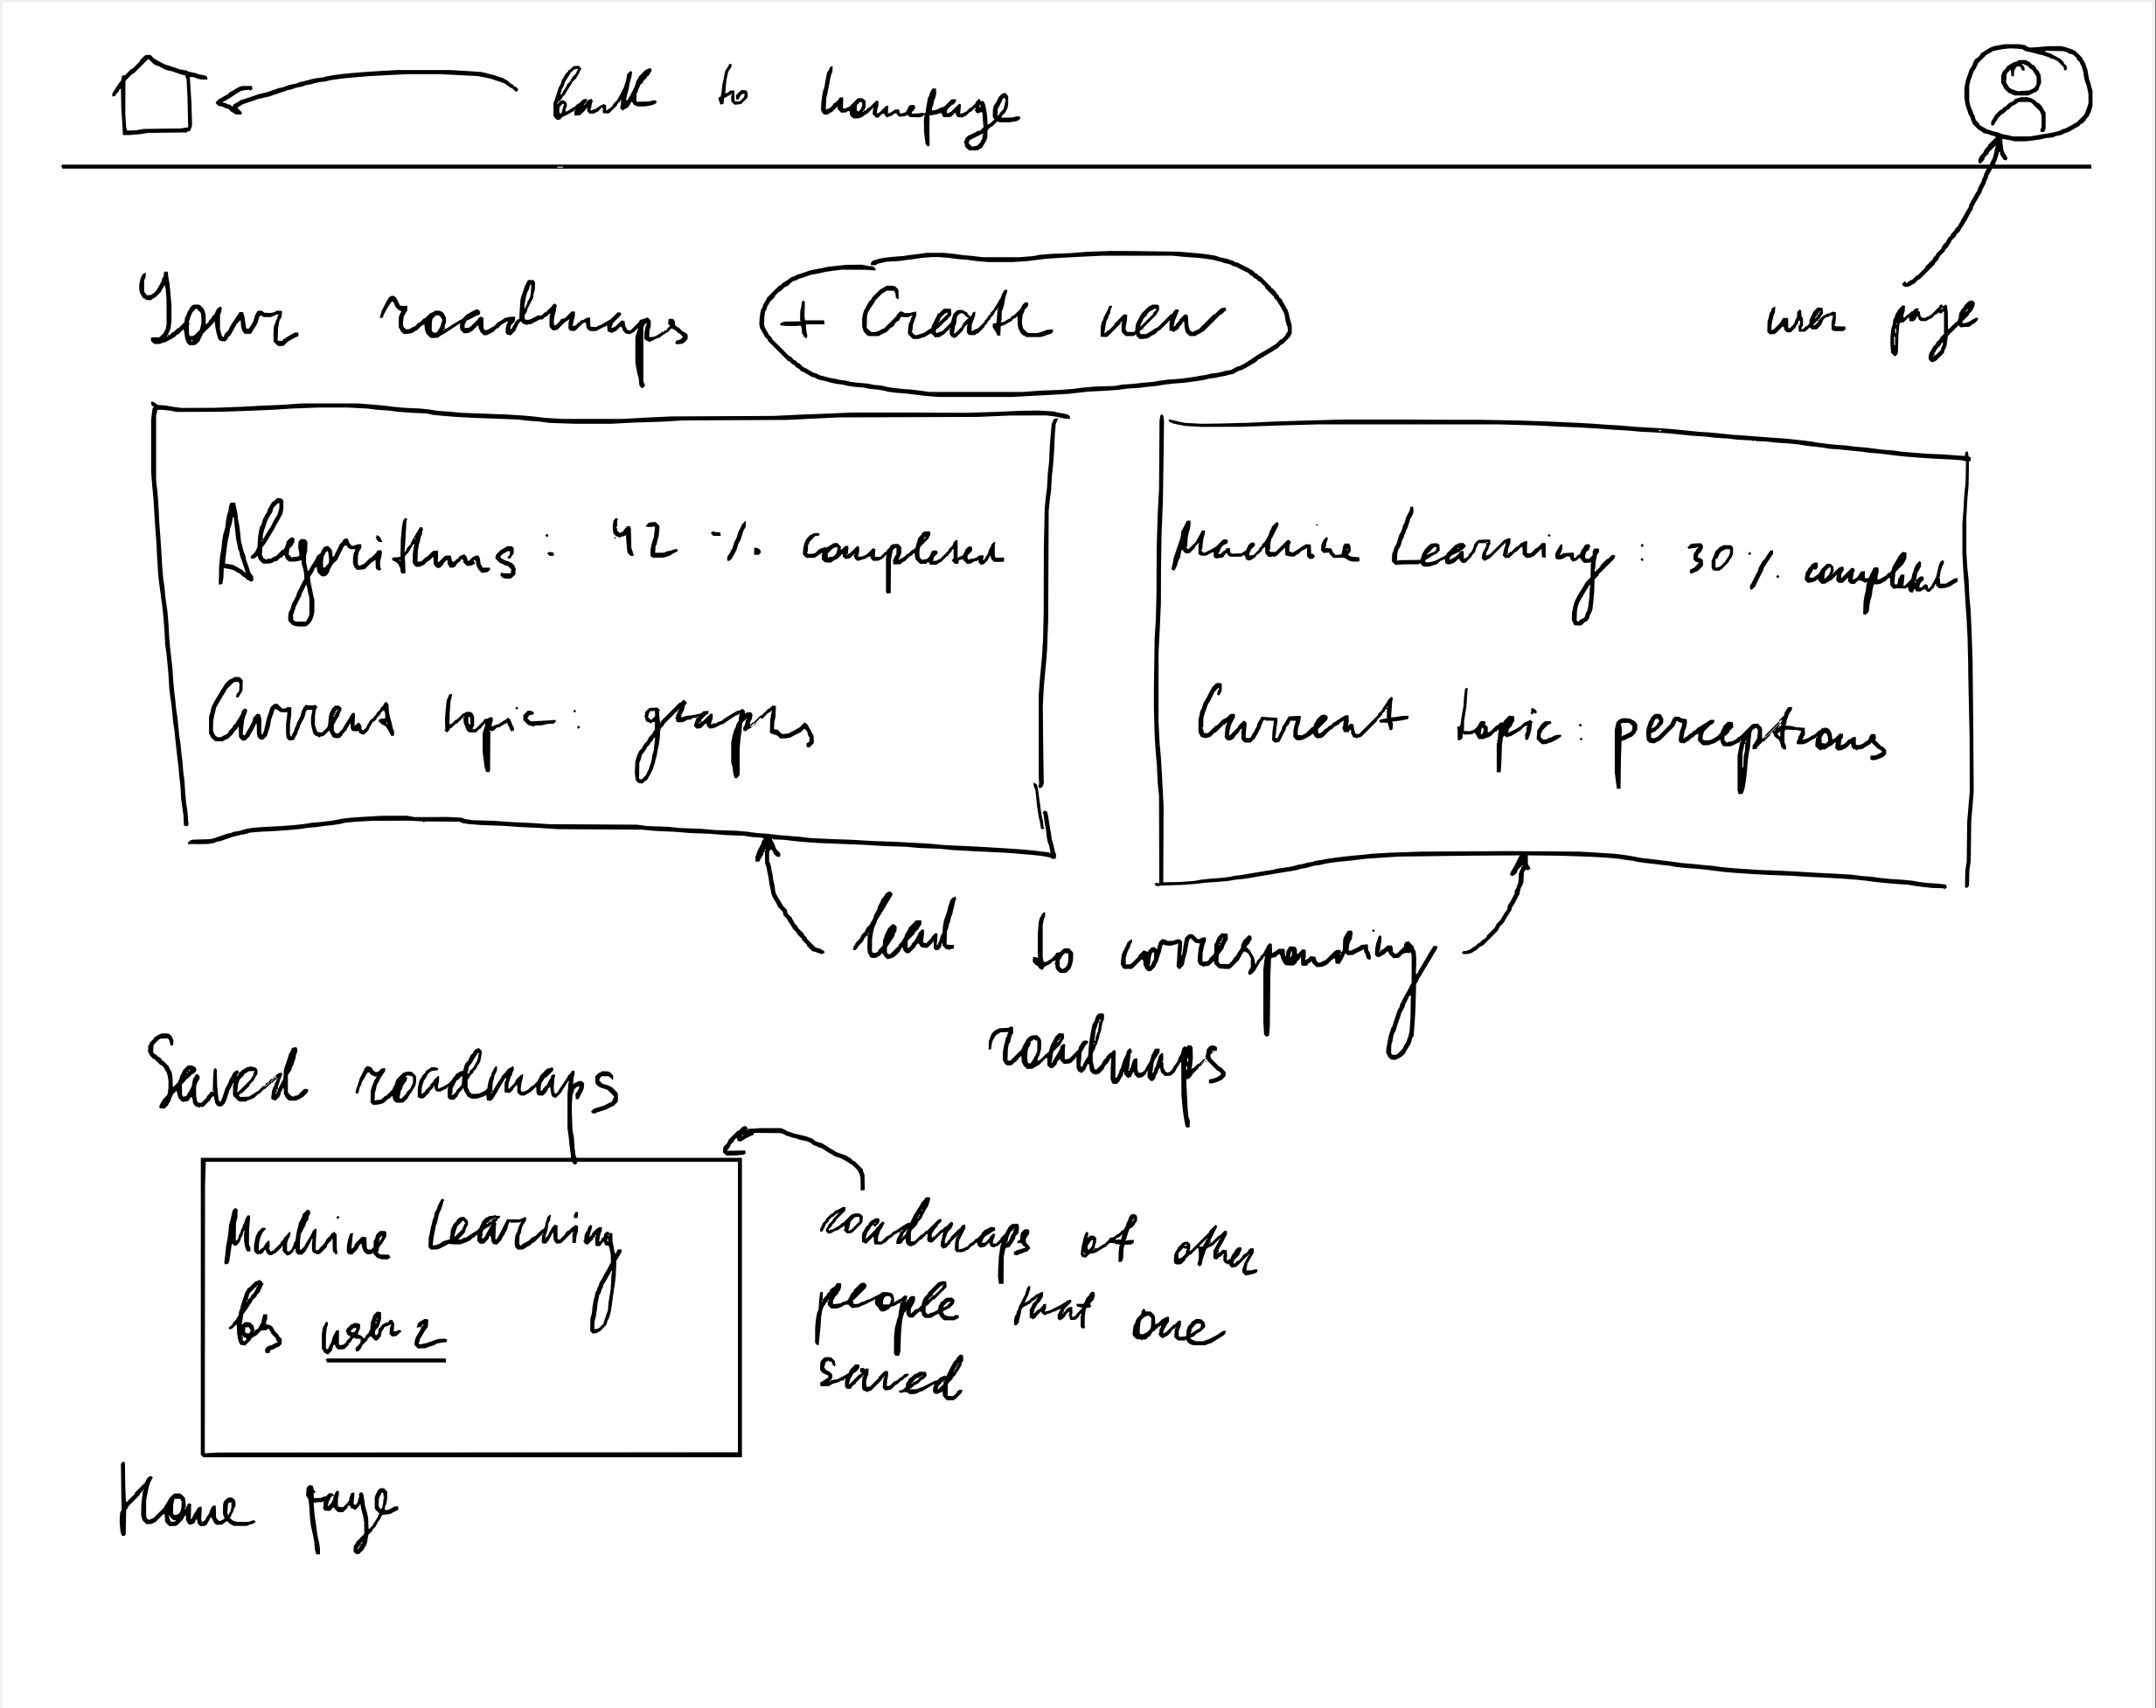 back to homepage
Your roadmaps + Create new
user page
Algorithms: 42 % complete
Current topic: graphs
Machine Learning: 30% complete
Current topic: perceptrons
lead to corresponding
roadmaps
Saved roadmaps
Machine Learning
by user 2
roadmaps of other
people that one
saved
Home page